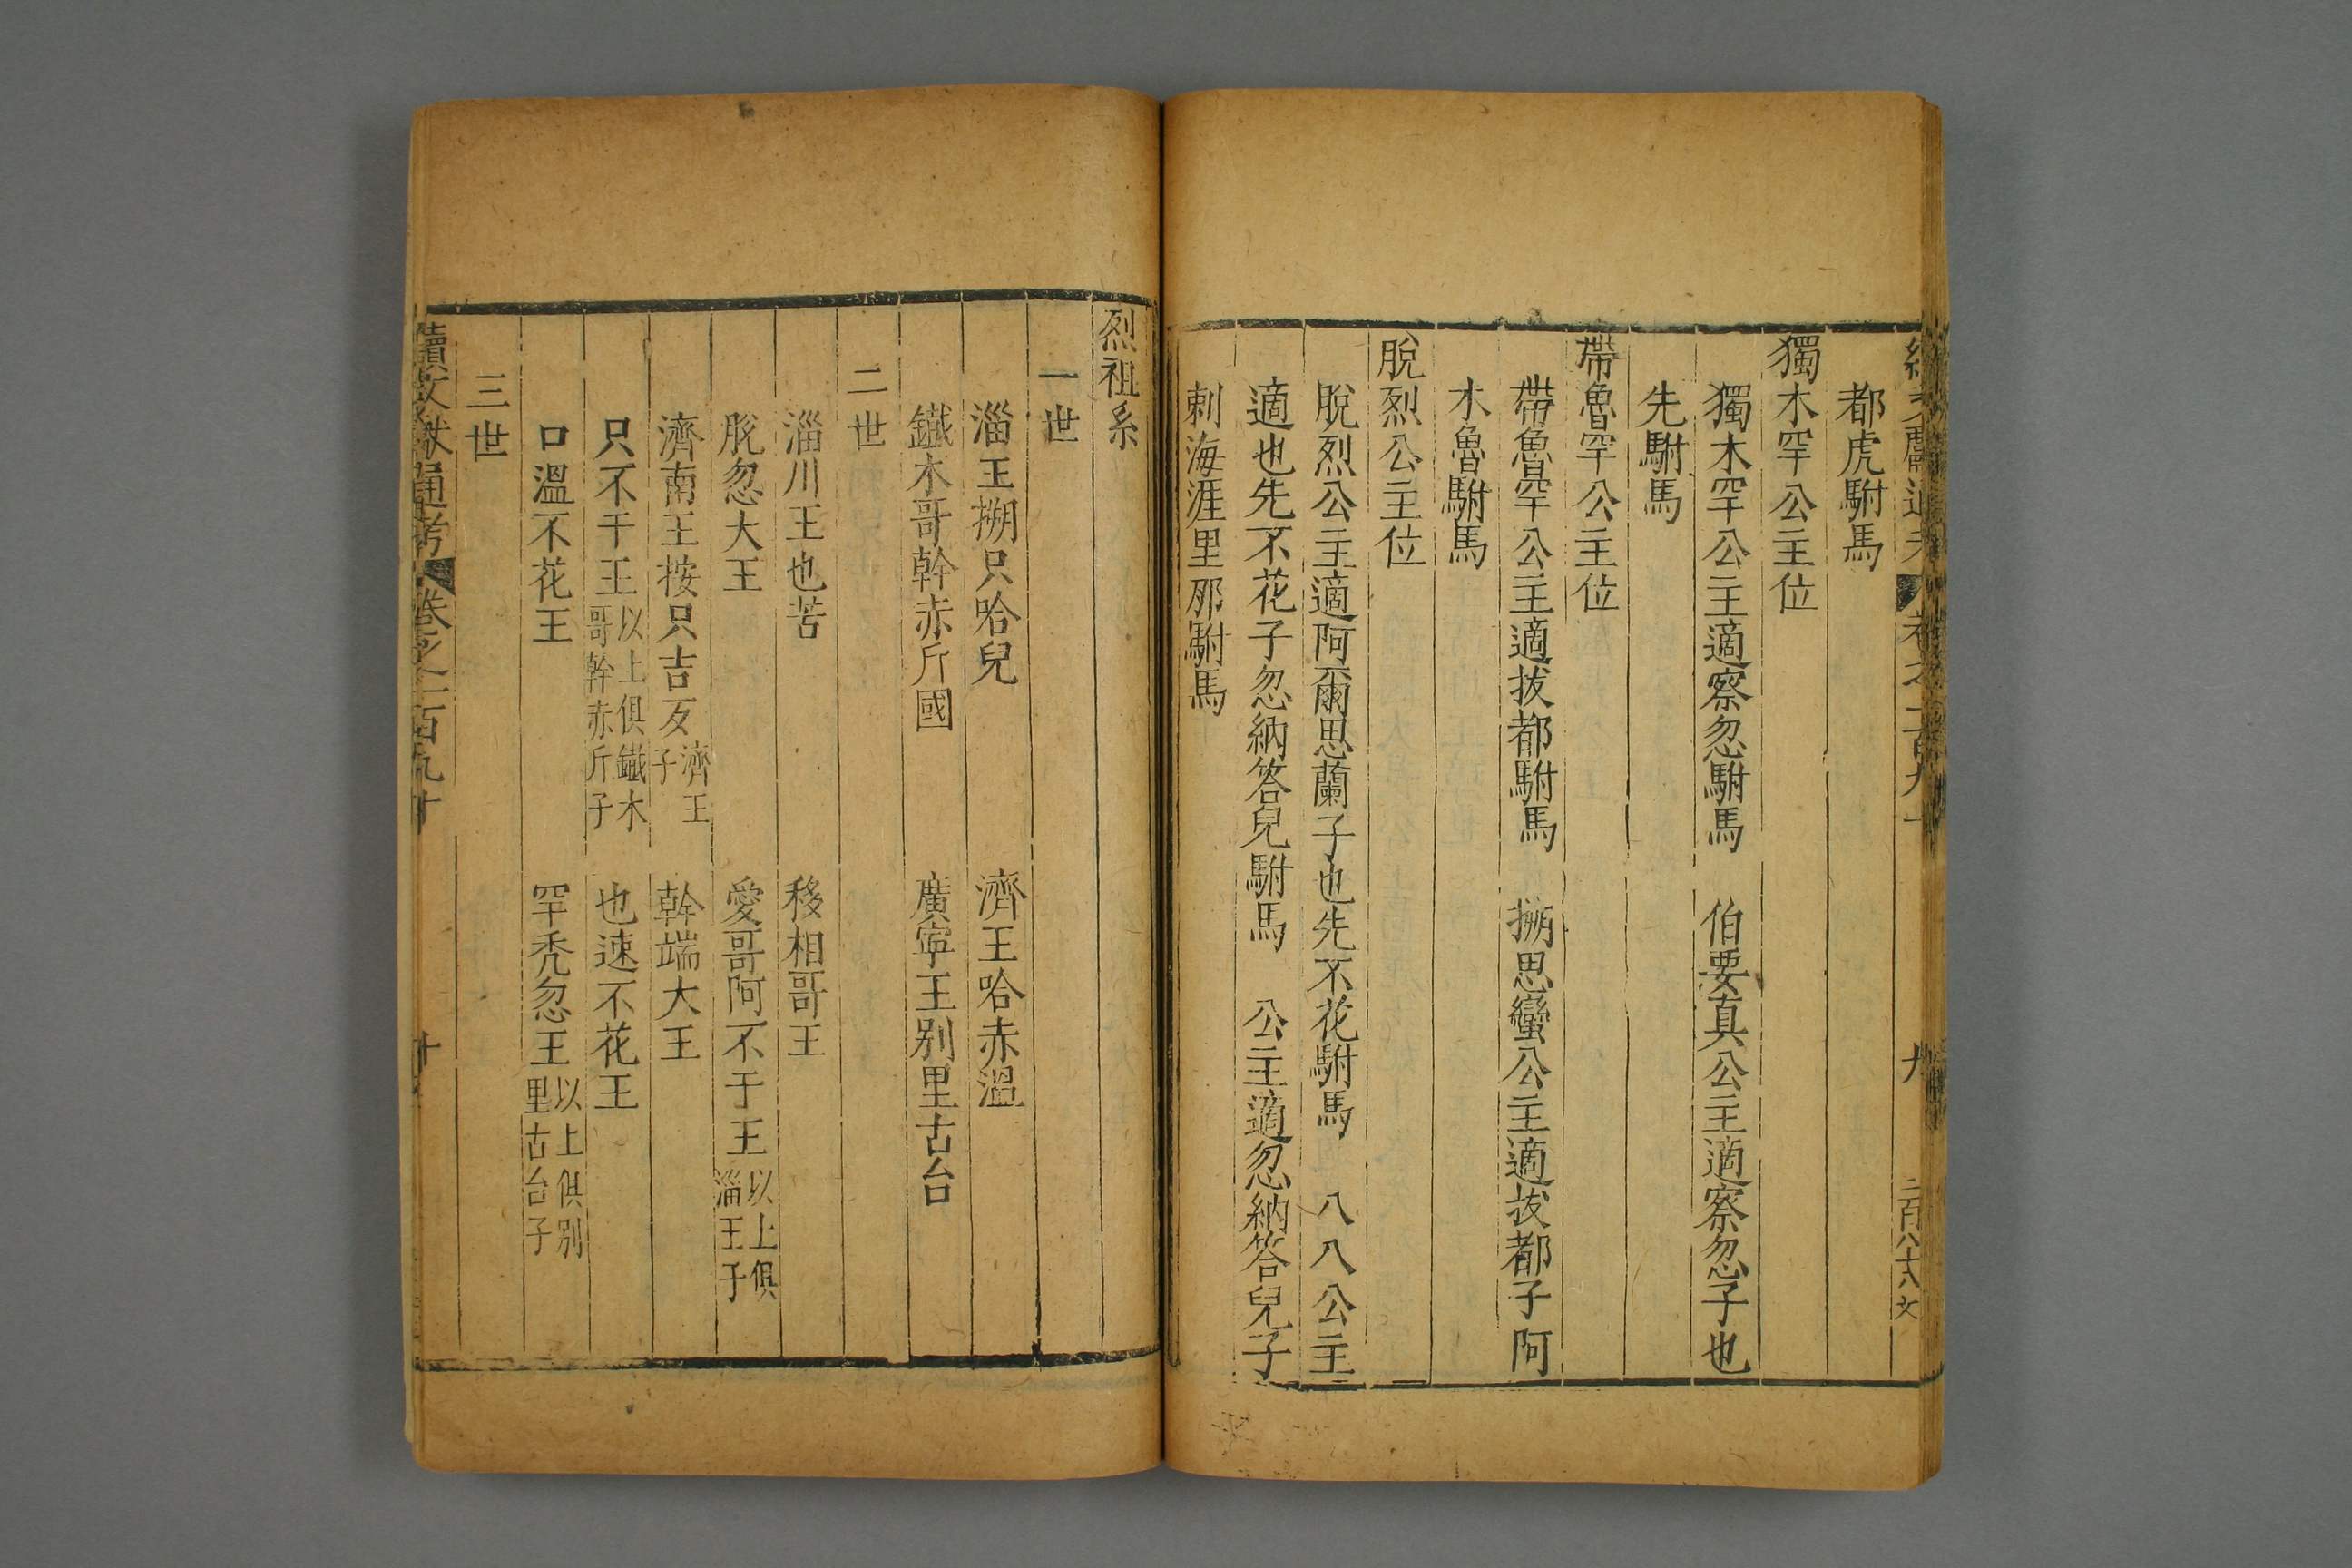 都虎駙馬
獨木罕公主位
獨木罕公主適察忽駙馬　伯要真公主適察忽子也
先駙馬
帶魯罕公主位
帶魯罕公主適拔都駙馬　搠思蠻公主適拔都子阿
木魯駙馬
脫烈公主位
脫烈公主適阿爾思蘭子也先不花駙馬　八八公主
適也先不花子忽納答兒駙馬　公主適忽納答兒子
剌海涯里那駙馬
烈祖系
一世
淄王搠只哈兒　濟王哈赤溫
鐵木哥斡赤斤國　廣寧王别里古台
二世
淄川王也苦　移相哥王
脫忽大王　愛哥阿不干王以上俱淄王子
濟南王按只吉歹濟王子　斡端大王
只不干王以上俱鐵木哥斡赤斤子　也速不花王
口溫不花王　罕禿忽王以上俱别里古台子
三世
續文獻通考　卷之二百九十